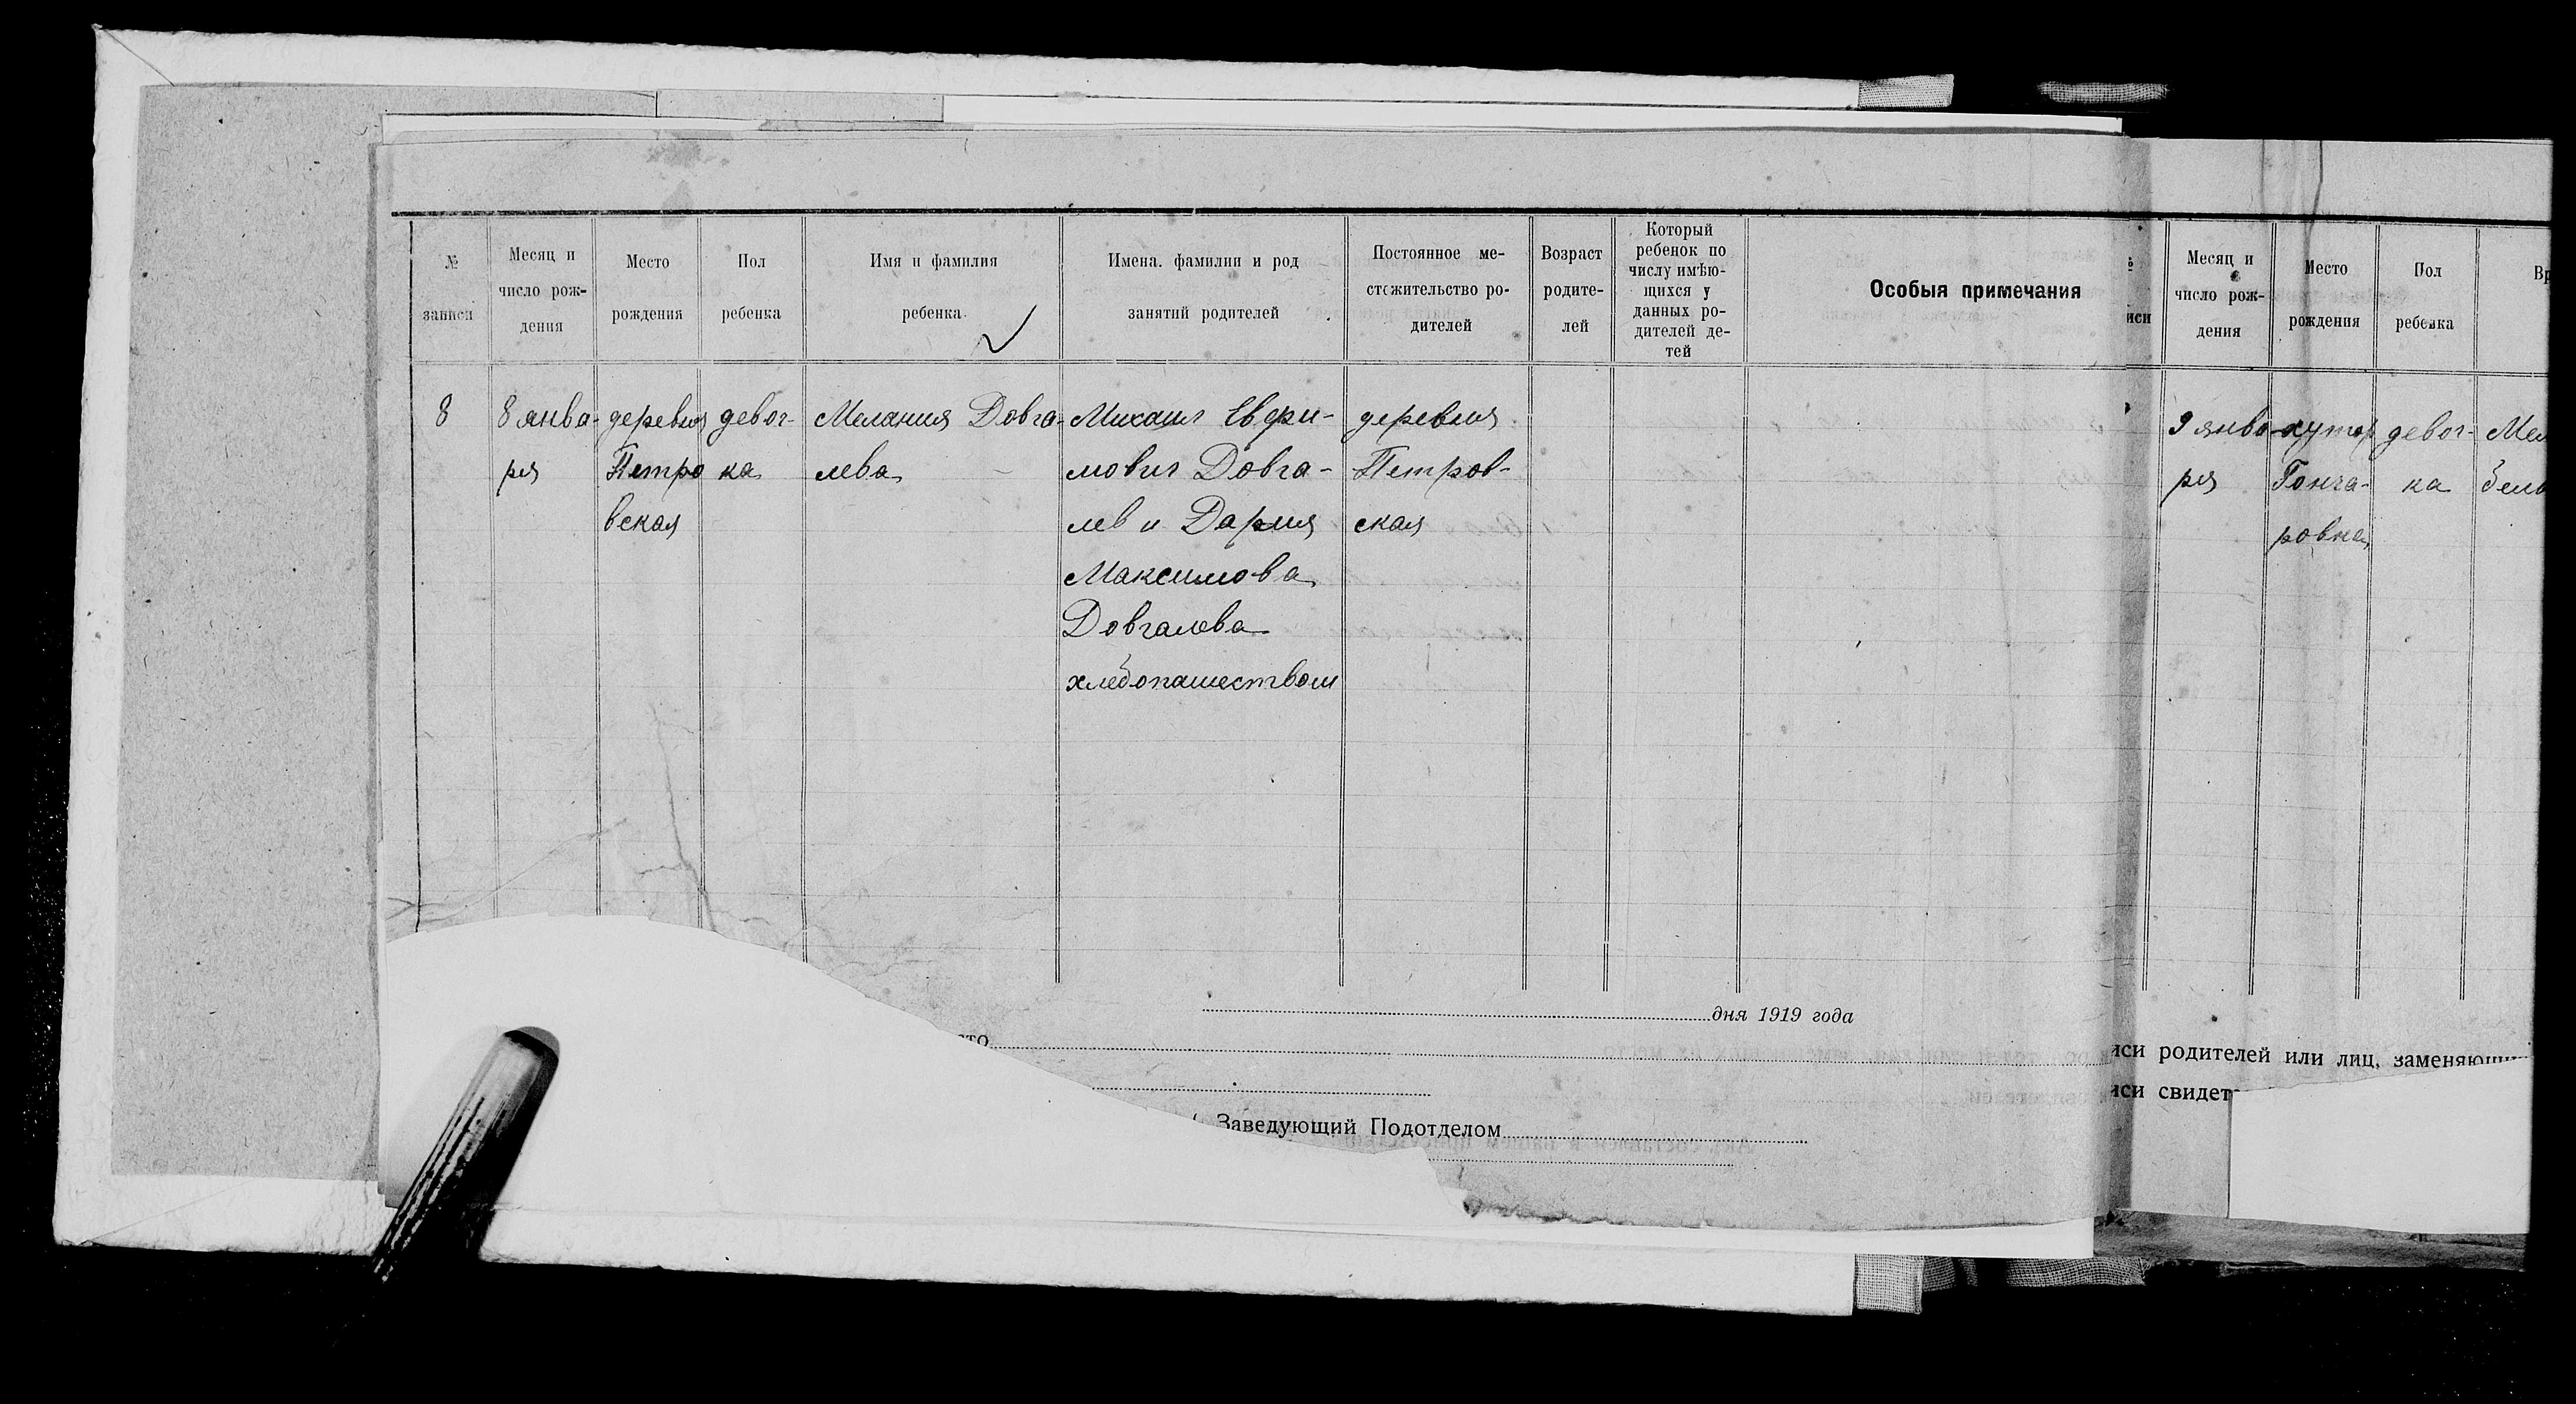 № записи
Месяц и число рож-дения
Место рождения
Пол ребенка
Имя и фамилия ребенка
Имена. фамилии и род занятий родителей
Постоянное ме-стожительство ро-дителей
Возраст родите-лей
Который ребенок по числу имѣю-щихся у данных ро-дителей де-тей
Особыя примечания
8
8 янва-
ря
деревня
Петро
вская
девоч-
ка
Мелания Довга-
лева
Михаил Евфи-
мович Довга-
лев и Дария
Максимова
Довгалева
хлебопашеством
деревня
Петров-
ская
дня 1919 года
Заведующий Подотделом
Месяц и число рож-дения
Место рождения
Пол ребенка
9 янва
ря
хутор
Гонча-
ровка
девоч-
ка
иси родителей или лиц, заменяющи
иси свидет